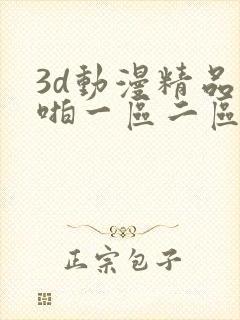 3d動漫精品
啪一區二區
正宗包子